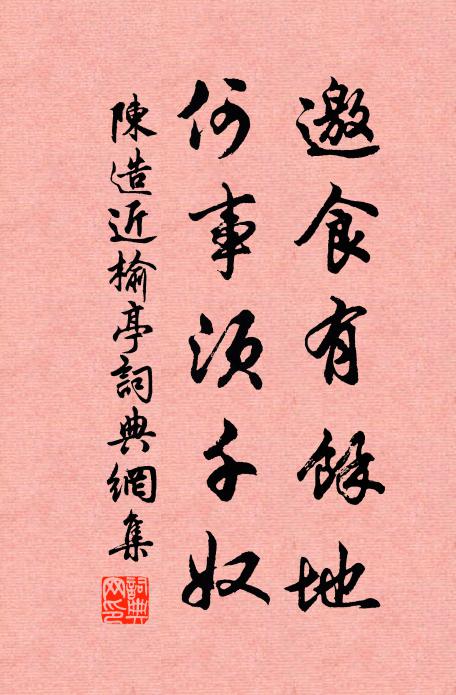 邀食有餘地
何事須千奴
陳造近榆亭詞典網集
詞典網印